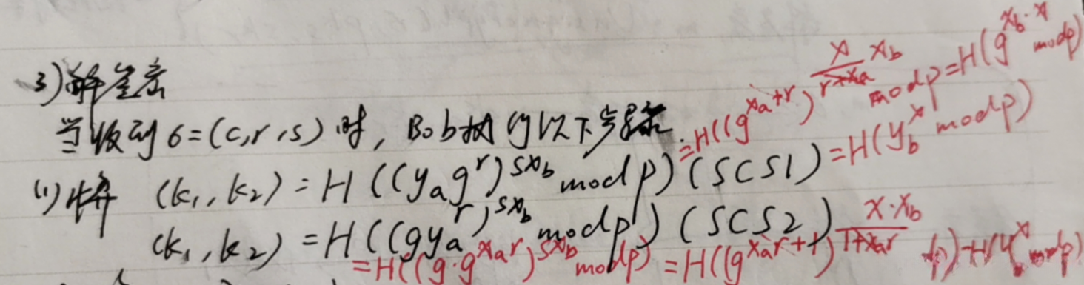 3) 解签密
当收到 σ=(c,r,s) 时, Bob执行以下步骤:
(1) 将 (k₁,k₂) = H((yₐgʳ)^{sx_b} mod p) (SCS1)
=H((g^{xₐ+r})^{\frac{x}{r+xₐ}x_b} mod p=H(g^{x_b·x} mod p)
=H(y_b^x mod p)
(k₁,k₂) = H((gyₐʳ)^{sx_b} mod p) (SCS2)
=H((g·g^{xₐr})^{sx_b} mod p) =H((g^{xₐr+1})^{\frac{x·x_b}{1+xₐr}} p)=H(y_b^x mod p)